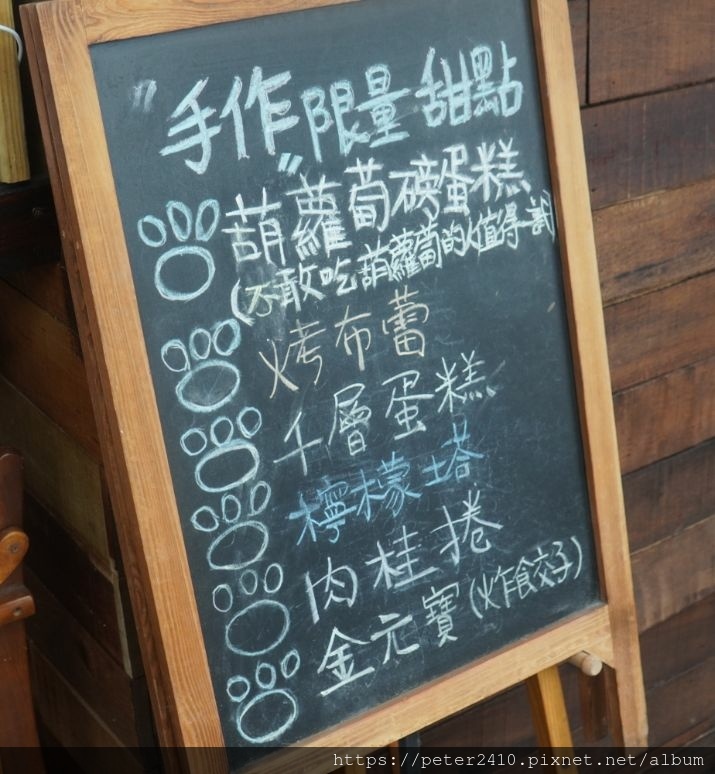 "手作"限量甜點
葫蘿蔔磅蛋糕
(不敢吃葫蘿蔔的人值得一試)
烤布蕾
千層蛋糕
檸檬塔
肉桂捲
金元寶(炸餃子)
https://peter2410.pixnet.net/album